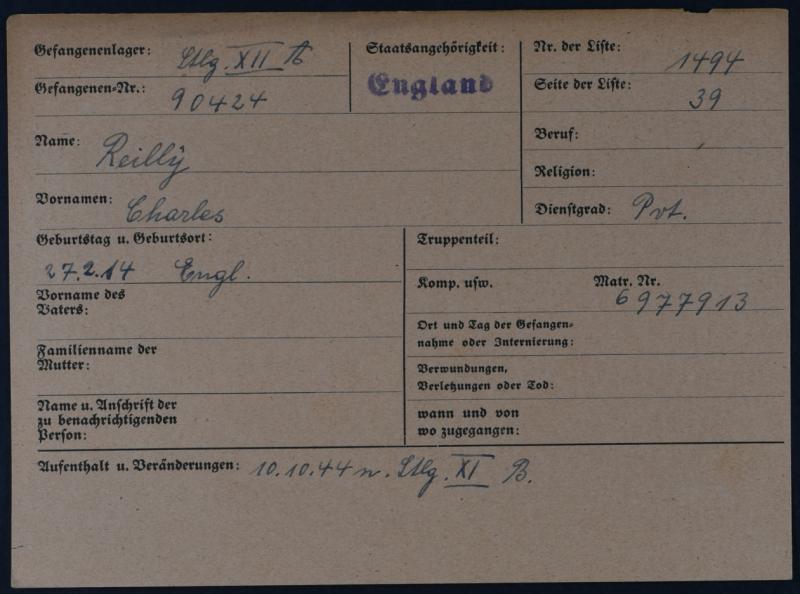 Gefangenenlager: Stlg. XII A
Staatsangehörigkeit: England
Nr. der Liste: 1494
Gefangenen-Nr.: 90424
Seite der Liste: 39
Name: Reilly
Beruf:
Religion:
Vornamen: Charles
Dienstgrad: Pvt.
Geburtstag u. Geburtsort:
27.2.14 Engl.
Truppenteil:
Komp. usw.
Matr. Nr.
6977913
Vorname des
Vaters:
Ort und Tag der Gefangen-
nahme oder Internierung:
Familienname der
Mutter:
Verwundungen,
Verletzungen oder Tod:
Name u. Anschrift der
zu benachrichtigenden
Person:
wann und von
wo zugegangen:
Aufenthalt u. Veränderungen: 10.10.44 n. Stlg. XI B.